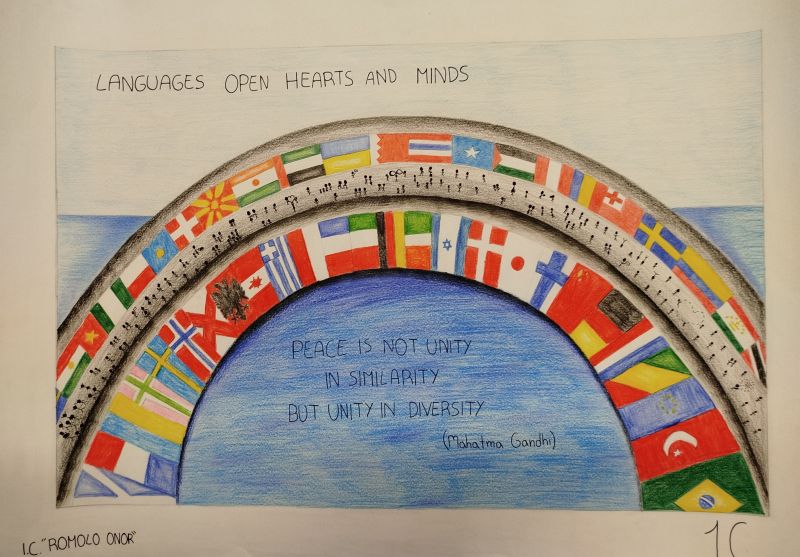 LANGUAGES OPEN HEARTS AND MINDS
PEACE IS NOT UNITY
IN SIMILARITY
BUT UNITY IN DIVERSITY
(Mahatma Gandhi)
I.C. "ROMOLO ONOR"
1C